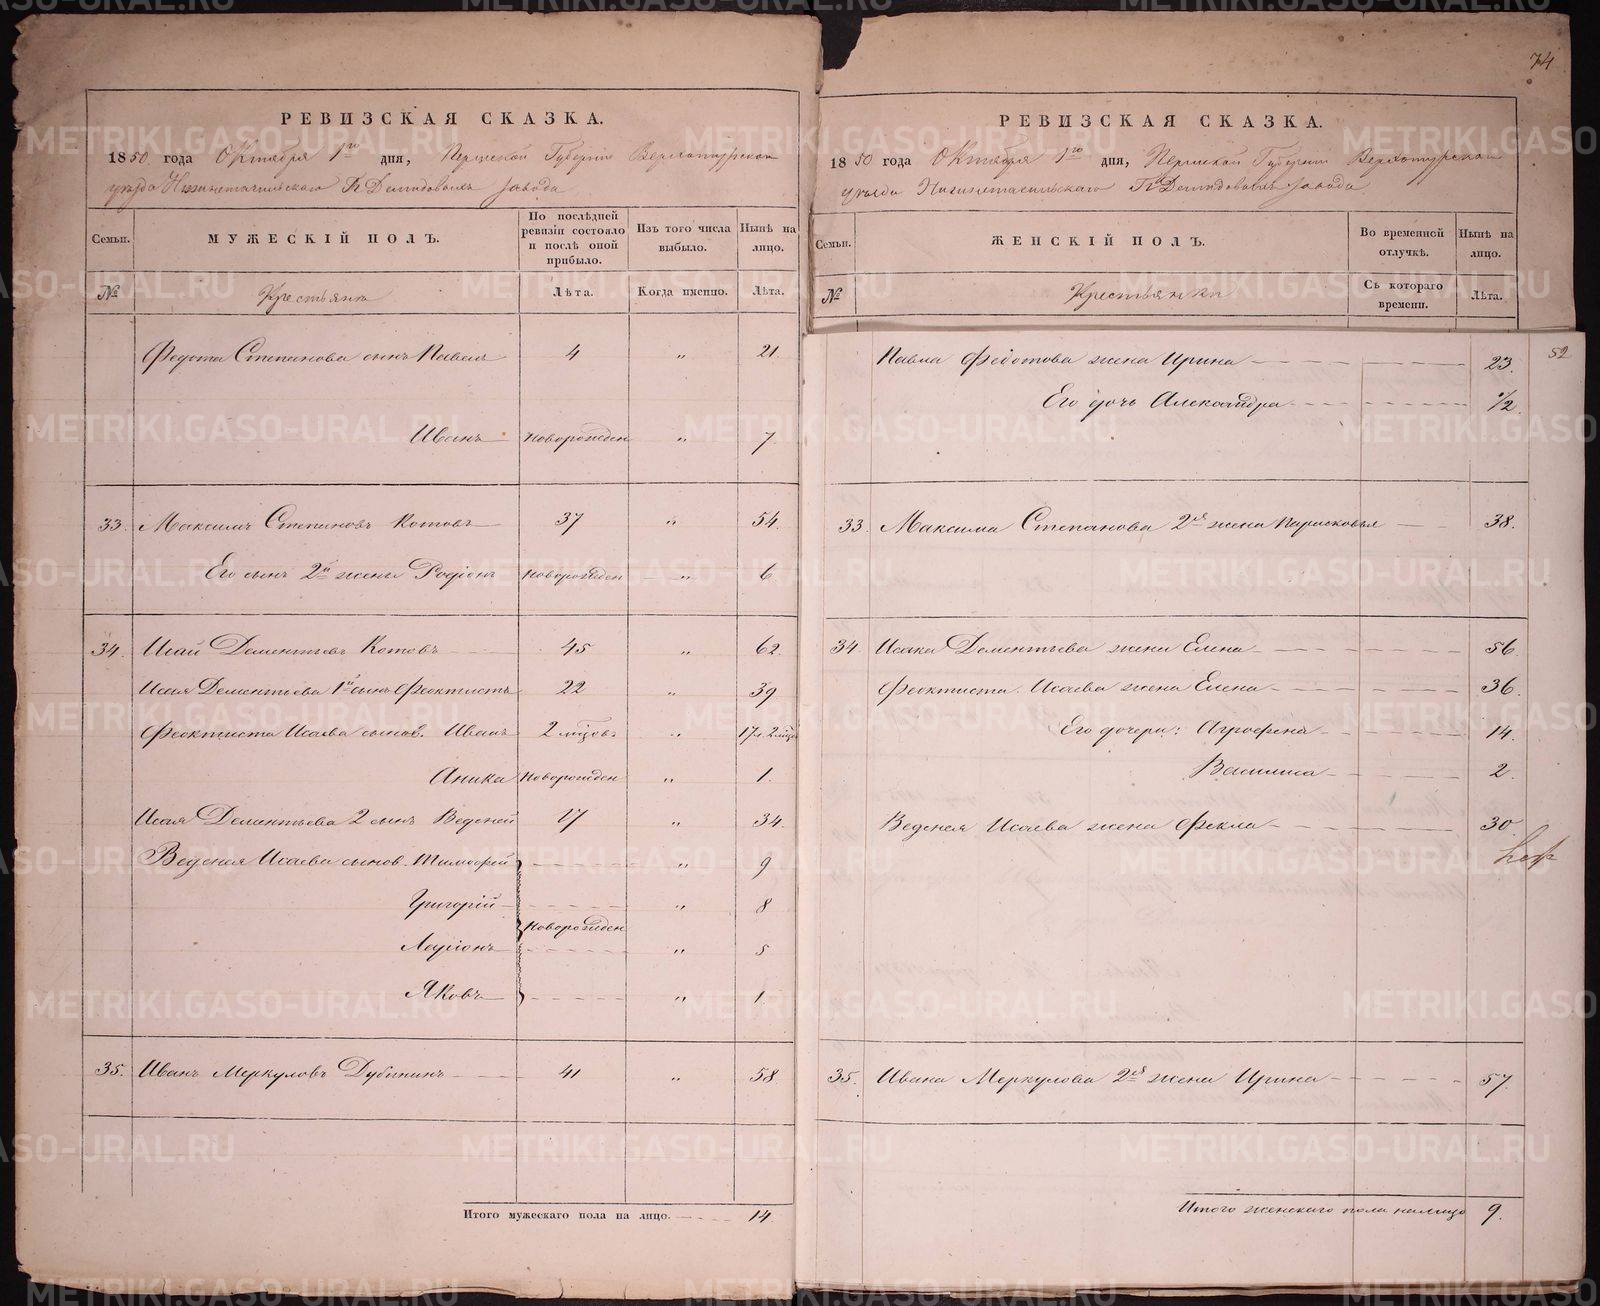 РЕВИЗСКАЯ СКАЗКА.
1850 года Октября 1го дня, Пермской Губернiи Верхотурскаго
уѣзда Нижнетагильскаго Гд Демидовыхъ завода
Семьи.
МУЖЕСКIЙ ПОЛЪ.
По послѣдней ревизiи состояло и послѣ оной прибыло.
Изъ того числа выбыло.
Нынѣ на лицо.
№
Крестьянъ
Лѣта.
Когда именно.
Лѣта.
Федота Степанова сынъ Павелъ 4 " 21
Иванъ Новорожден " 7
33. Максимъ Степановъ Котовъ 37 " 54.
Его сынъ 2й жены Родiонъ Новорожден " 6
34. Исай Дементьевъ Котовъ 45 " 62.
Исая Дементьева 1й сынъ Феоктистъ 22 " 39
Феоктиста Исаева сынов. Иванъ 2 мѣсов. " 17л. 2мѣс
Аника Новорожден " 1.
Исая Дементьева 2 сынъ Ведсней 17 " 34.
Ведснея Исаева сынов. Тимофей " 9
Григорiй " 8
Новорожден
Ларiонъ " 5
Яковъ " 1.
35. Иванъ Меркуловъ Дубынинъ 41 " 58
Итого мужескаго пола на лицо. 14
74
РЕВИЗСКАЯ СКАЗКА.
1850 года Октября 1го дня, Пермской Губернiи Верхотурскаго
уѣзда Нижнетагильскаго Гд Демидовыхъ завода
Семьи.
ЖЕНСКIЙ ПОЛЪ.
Во временной отлучкѣ.
Нынѣ на лицо.
№
Крестьянки
Съ котораго времени.
Лѣта.
52
Павла Федотова жена Ирина 23.
Его дочь Александра 1/2
33. Максима Степанова 2я жена Парасковья 38.
34 Исака Дементьева жена Елена 56
Феоктиста Исаева жена Елена 36
Его дочери: Агрофена 14.
Василиса 2.
Ведснея Исаева жена Фекла 30
35. Ивана Меркулова 2я жена Ирина 57.
Итого женскаго пола налицо 9.
METRIKI.GASO-URAL.RU